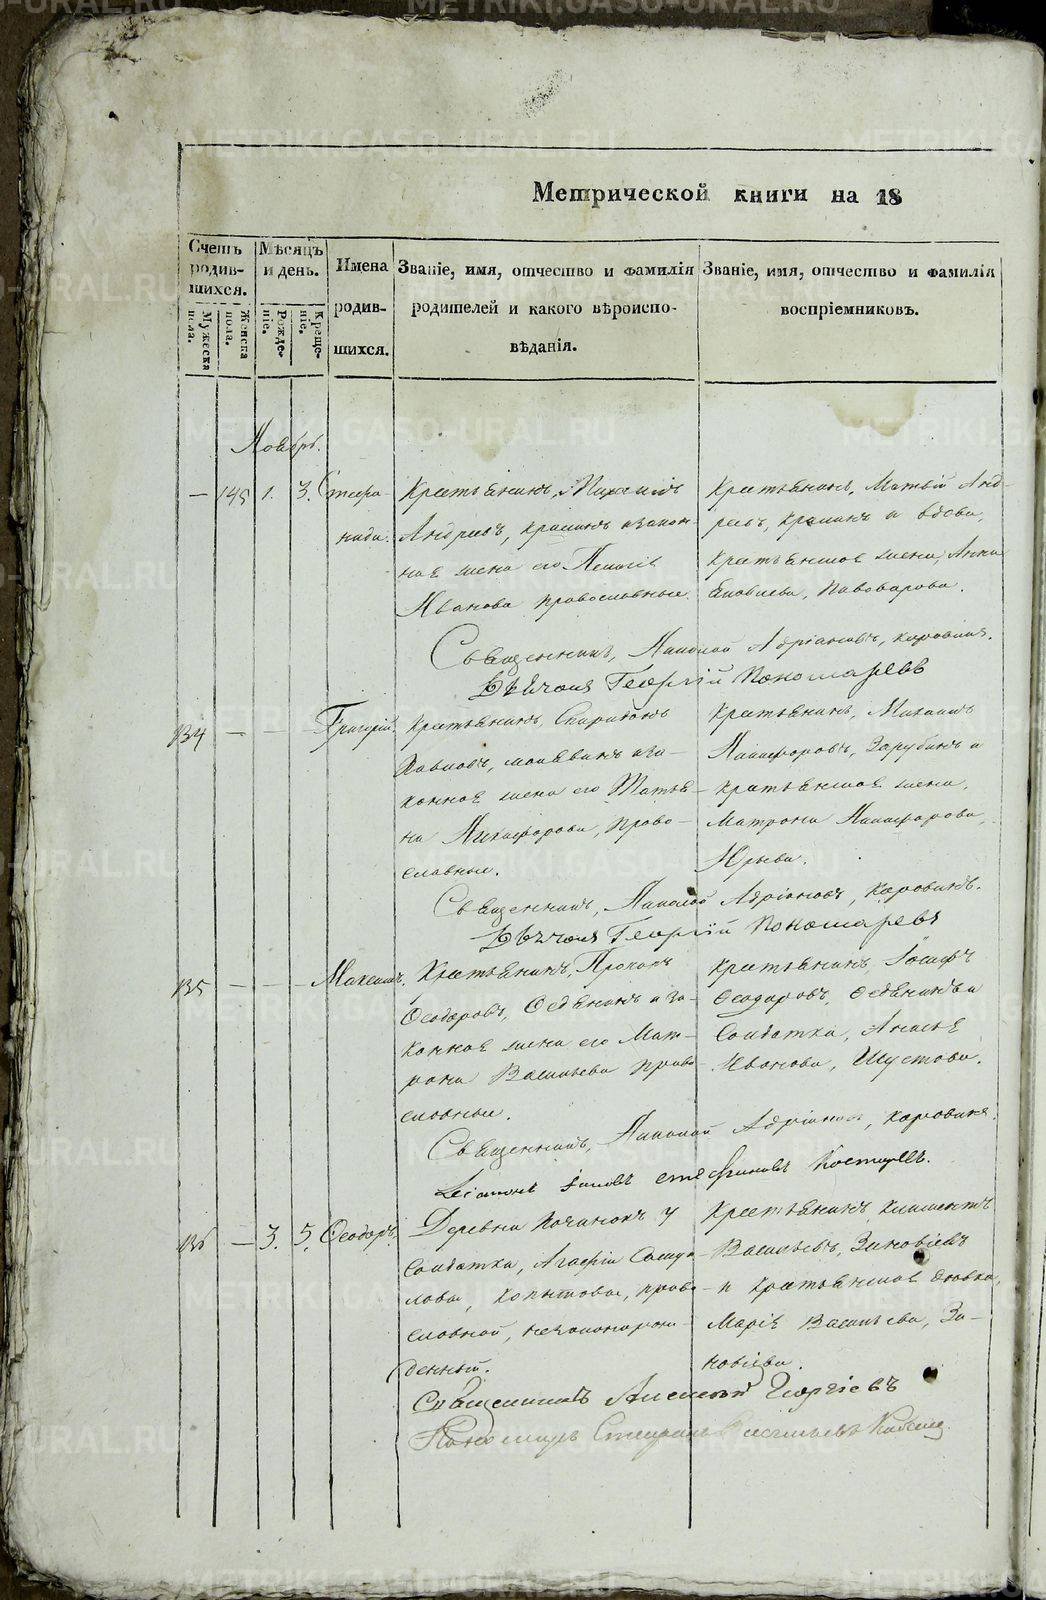 METRIKI.GASO-URAL.RU
Метрической книги на 18
Счетъ родив-шихся.
Мужеска пола.
Женска пола.
Мѣсяцъ и день.
Рожде-ніе.
Креще-ніе.
Имена родив-шихся.
Званіе, имя, отчество и фамилія
родителей и какого вѣроиспо-
вѣданія.
Званіе, имя, отчество и фамилія
воспріемниковъ.
Ноябрь.
— 145 1. 3. Стефа-
нида.
Крестьянинъ, Михаилъ
Андреевъ, и закон-
ная жена его Пелагія
Иванова православные.
Крестьянинъ, Матвѣй Анд-
реевъ, и вдова,
крестьянская жена, Анна
Яковлева, Пивоварова.
Священникъ, Николай Адріановъ, Коровинъ.
Дьячокъ Георгій Пономаревъ
134 — — — Григорій.
Крестьянинъ, Спиридонъ
Павловъ, и за-
конная жена его Татья-
на Никифорова, право-
славные.
Крестьянинъ, Михаилъ
Никифоровъ, Зарубинъ и
крестьянская жена,
Матрона Никифорова,
Юрьева.
Священникъ, Николай Адріановъ, Коровинъ.
Дьячокъ Георгій Пономаревъ
135 — — — Максимъ.
Крестьянинъ, Прокопъ
Ѳеодоровъ, и за-
конная жена его Мат-
рона Васильева право-
славные.
Крестьянинъ, Іосифъ
Ѳеодоровъ, и
солдатка, Анисья
Иванова, Шустова.
Священникъ, Николай Адріановъ, Коровинъ.
136 — 3. 5. Ѳеодоръ.
Деревни Починокъ у
солдатки, Агафіи Самуи-
ловой, Копытовой, право-
славной, незаконорож-
денный.
Крестьянинъ, Климентъ
Васильевъ, Зиновьевъ
и крестьянская дѣвка,
Марія Васильева, Зи-
новьева.
Священникъ Алексѣй Георгіевъ
Пономарь Стефанъ